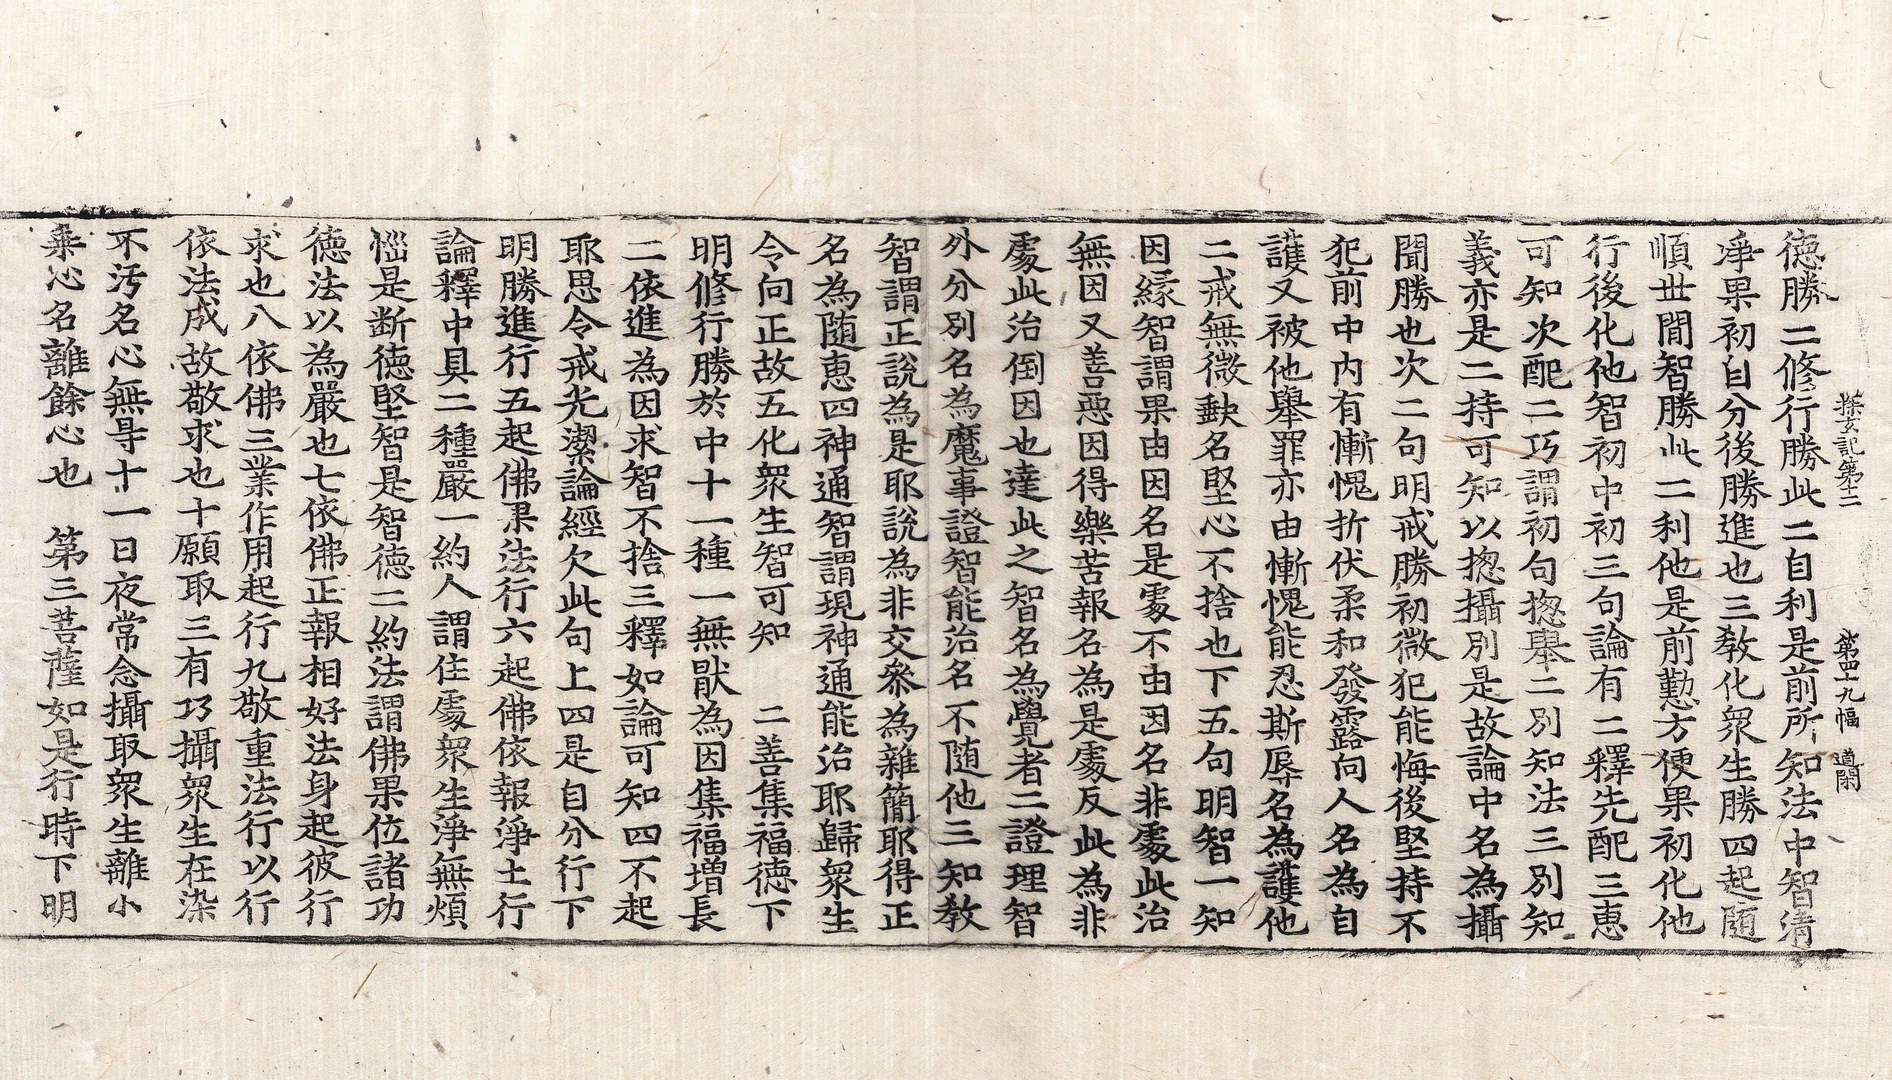 探玄記第十二 第四十九幅 道閑
德勝二修行勝此二自利是前所知法中智清
淨果初自分後勝進也三教化眾生勝四起随
順世間智勝此二利他是前勤方便果初化他
行後化他智初中初三句論有二釋先配三惠
可知次配二巧謂初句揔舉二別知法三別知
義亦是二持可知以揔攝別是故論中名為攝
聞勝也次二句明戒勝初微犯能悔後堅持不
犯前中内有慚愧折伏柔和發露向人名為自
護又被他舉罪亦由慚愧能忍斯辱名為護他
二戒無微缺名堅心不捨也下五句明智一知
因緣智謂果由因名是䖏不由因名非䖏此治
無因又善惡因得樂苦報名為是䖏反此為非
䖏此治倒因也達此之智名為覺者二證理智
外分別名為魔事證智能治名不随他三知教
智謂正說為是耶說為非交叅為雜簡耶得正
名為随惠四神通智謂現神通能治耶歸眾生
令向正故五化眾生智可知 二善集福德下
明修行勝於中十一種一無猒為因集福增長
二依進為因求智不捨三釋如論可知四不起
耶思令戒光潔論經欠此句上四是自分行下
明勝進行五起佛果法行六起佛依報淨土行
論釋中具二種嚴一約人謂住䖏眾生淨無煩
惱是断德堅智是智德二約法謂佛果位諸功
德法以為嚴也七依佛正報相好法身起彼行
求也八依佛三業作用起行九敬重法行以行
依法成故敬求也十願取三有巧攝眾生在染
不污名心無㝵十一日夜常念攝取眾生離小
乘心名離餘心也 第三菩薩如是行時下明